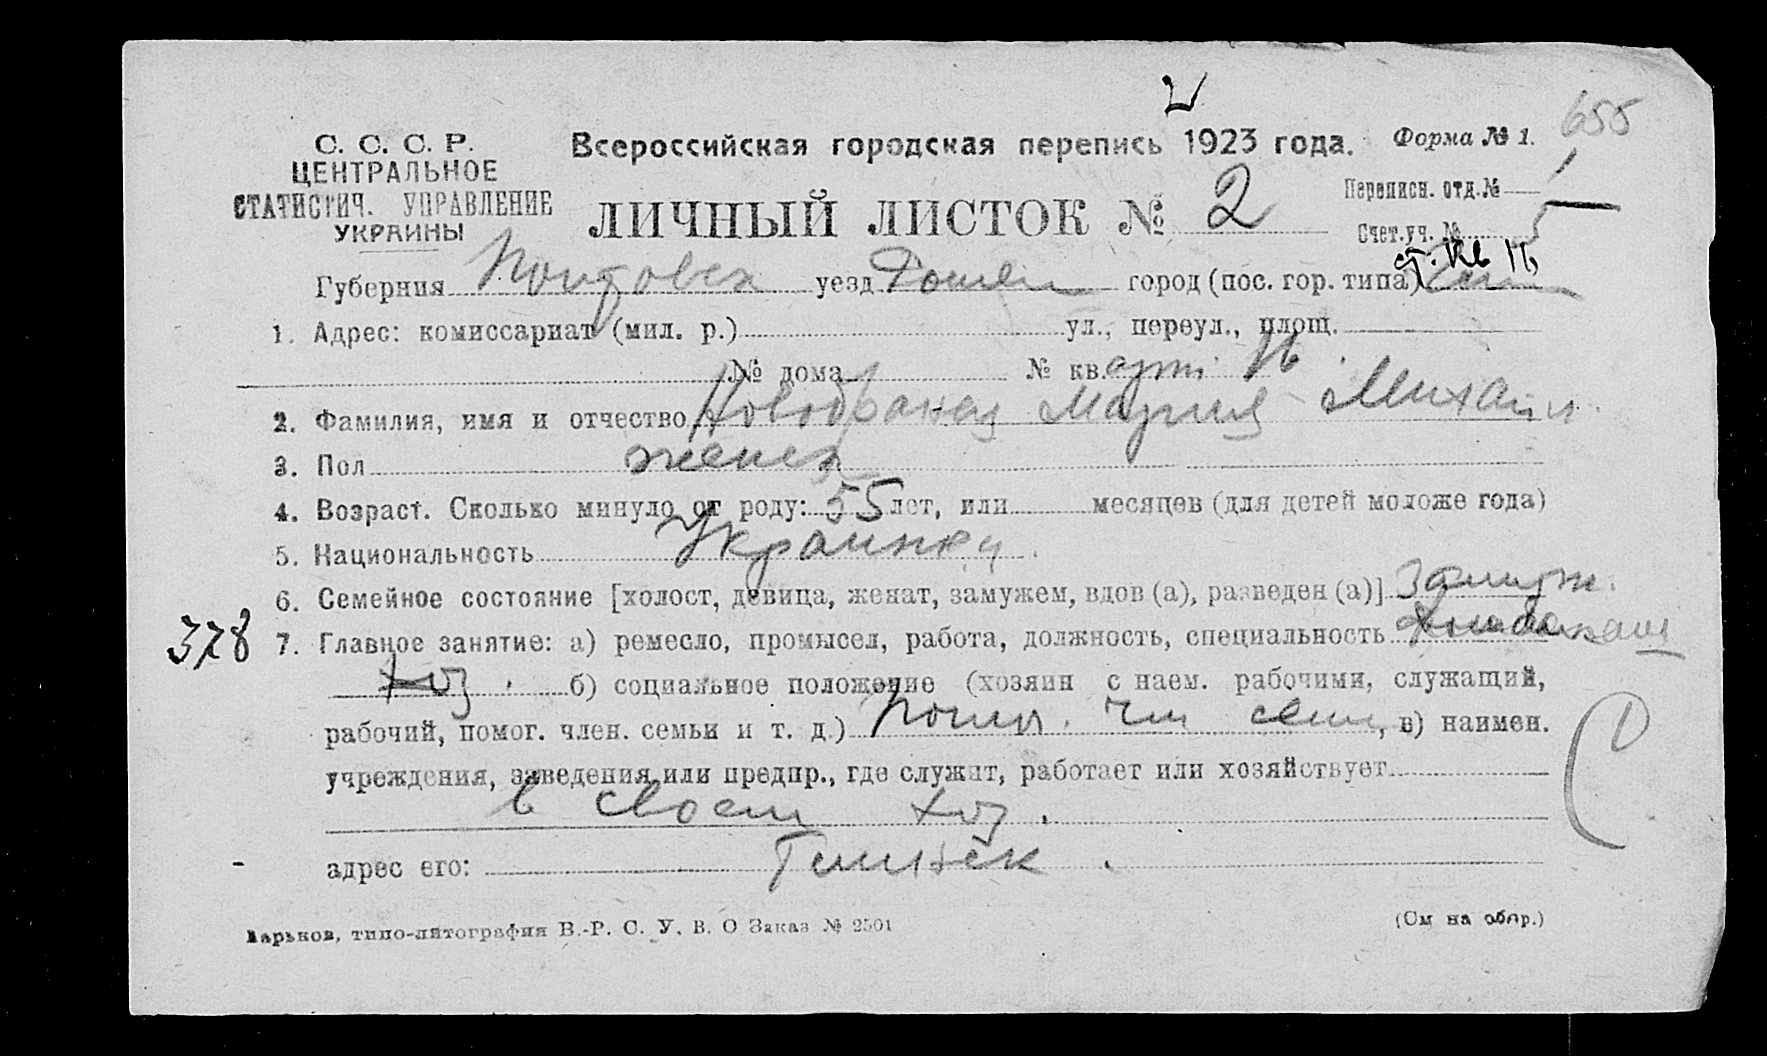 655
С. С. С. Р.
ЦЕНТРАЛЬНОЕ
СТАТИСТИЧ. УПРАВЛЕНИЕ
УКРАИНЫ
Всероссийская городская перепись 1923 года.
Форма № 1.
ЛИЧНЫЙ ЛИСТОК № 2
Переписн. отд. №
Счет. уч. №
Губерния Полтовск уезд Ромен город (пос. гор. типа)
1. Адрес: комиссариат (мил. р.) ул., переул., площ.
№ дома № кв.
2. Фамилия, имя и отчество Новобраная Мария Михайл.
3. Пол женск
4. Возраст. Сколько минуло от роду: 55 лет, или месяцев (для детей моложе года)
5. Национальность Украинка.
6. Семейное состояние [холост, девица, женат, замужем, вдов (а), разведен (а)] Замуж.
378 7. Главное занятие: а) ремесло, промысел, работа, должность, специальность
хоз. б) социальное положение (хозяин с наем. рабочими, служащий,
рабочий, помог. член. семьи и т. д.) помог. чл семи, в) наимен.
учреждения, заведения или предпр., где служит, работает или хозяйствует
в своем хоз.
адрес его:
Харьков, типо-литография В.-Р. С. У. В. О Заказ № 2501
(См на обор.)